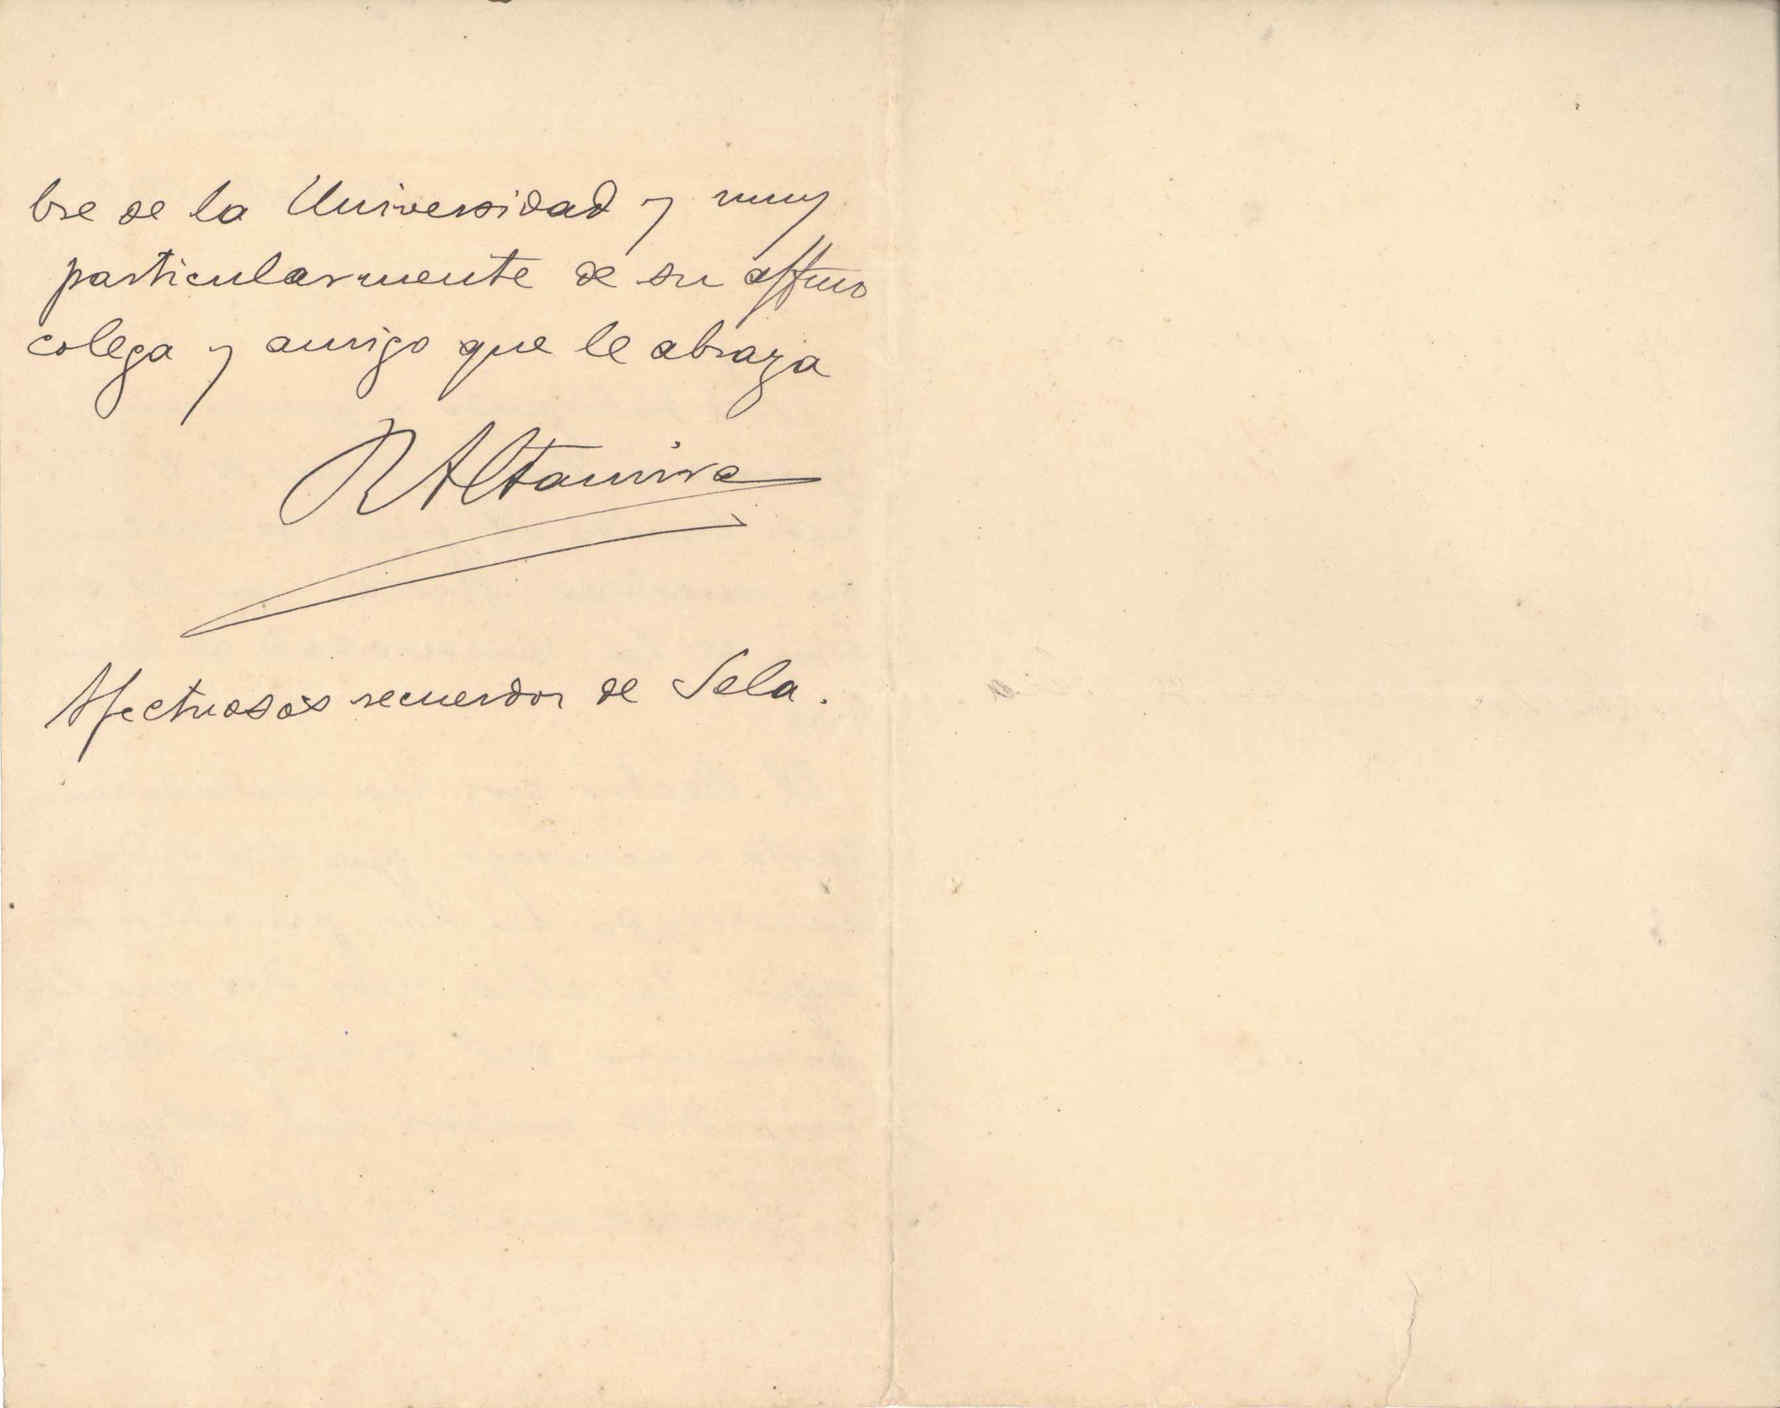 bre de la Universidad y muy
particularmente de su affmo
colega y amigo que le abraza
R Altamira
Afectuosos recuerdos de Sela.